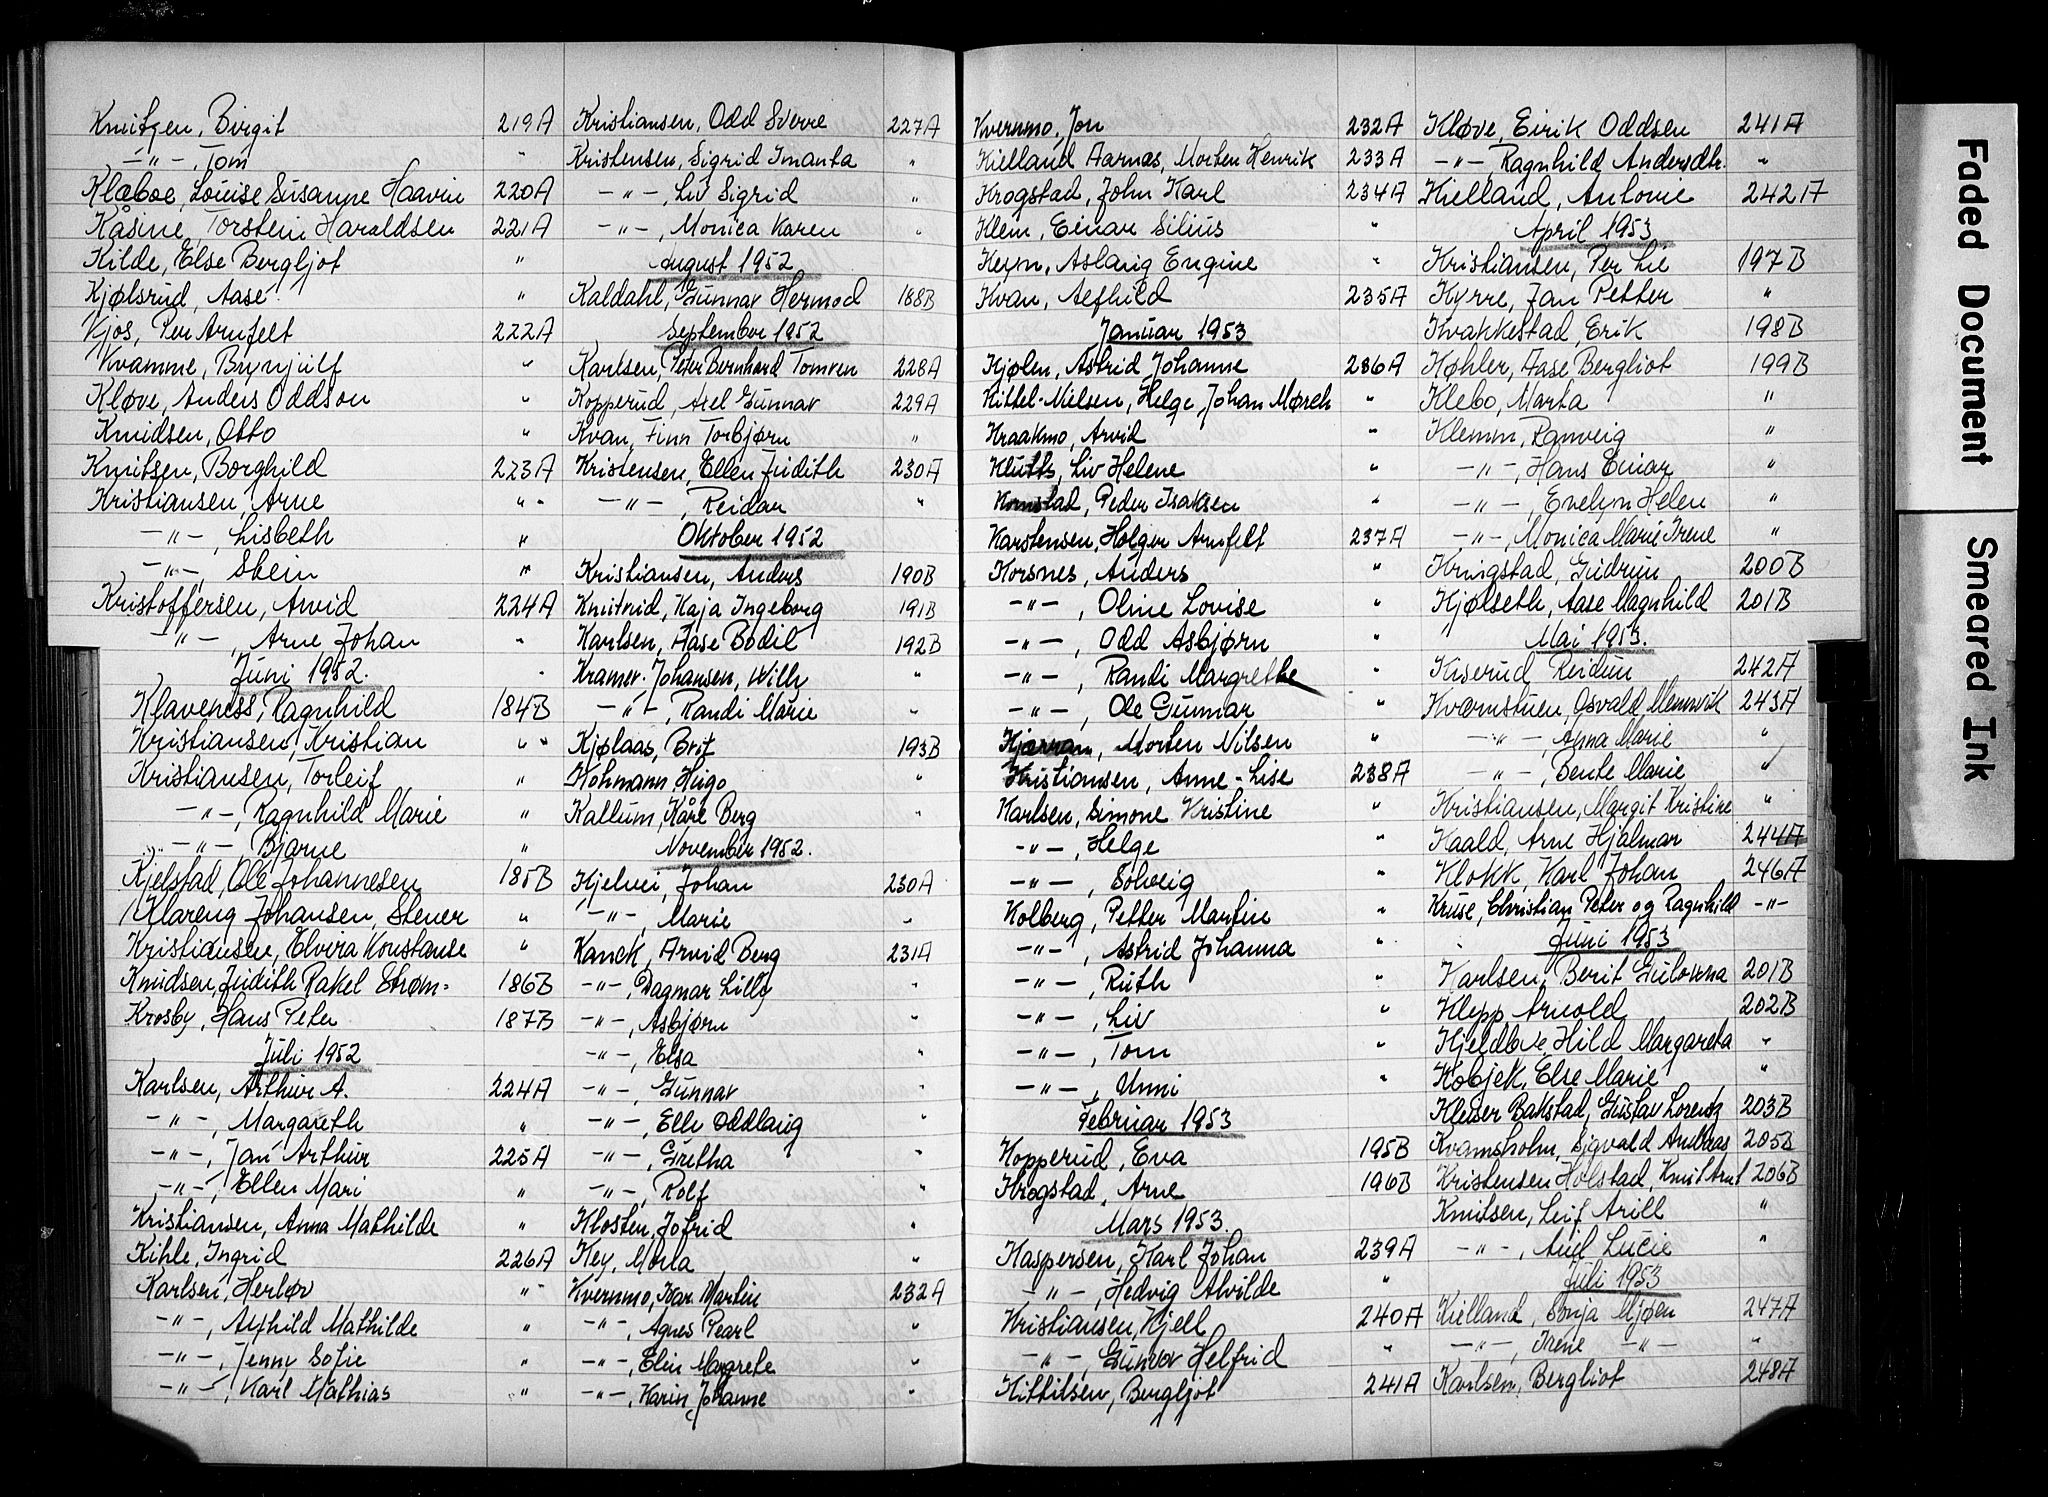 Knutzen, Birgit 219A
-"-, Tom "
Klæboe, Louise Susanne Haavin 220A
Kåsine, Torstein Haraldsen 221A
Kilde, Else Bergljot "
Kjølsrud, Aase "
Kjos, Per Arnfelt 222A
Kvamme, Brynjulf "
Kløve, Anders Oddson "
Knudsen, Otto "
Knutsen, Borghild 223A
Kristiansen, Arne " "
-"-, Lisbeth "
-"-, Stein "
Kristoffersen, Arvid 224A
-"-, Arne Johan "
Juni 1952.
Klaveness, Ragnhild 184B
Kristiansen, Kristian " "
Kristiansen, Torleif "
-"-, Ragnhild Marie "
-"-, Bjarne "
Kjelstad, Ole Johannesen 185B
Klareng Johansen, Stener "
Kristiansen, Elvira Konstanse "
Knudsen, Judith Rakel Strøm- 186B
Krosby, Hans Peter 187B
Juli 1952
Karlsen, Arthur A. 224A
-"-, Margareth "
-"-, Jan Arthur 225A
-"-, Ellen Mari "
Kristiansen, Anna Mathilde "
Kihle, Ingrid 226A
Karlsen, Herlov "
-"-, Alfhild Mathilde "
-"-, Jenny Sofie "
-"-, Karl Mathias "
Kristiansen, Odd Sverre 227A
Kristensen, Sigrid Imanta "
-"-, Liv Sigrid "
-"-, Monica Karen "
August 1952
Kaldahl, Gunnar Hermod 188B
September 1952
Karlsen, Peter Bernhard Tomren 228A
Kopperud, Axel Gunnar 229A
Kvan, Finn Torbjørn "
Kristensen, Ellen Judith 230A
-"-, Reidar "
Oktober 1952
Kristiansen, Anders 190B
Knutrud, Kaja Ingeborg 191B
Karlsen, Aase Bodil 192B
Kramer-Johansen, Willy "
-"-, Randi Marie "
Kjølaas, Brit 193B
Kohmann, Hugo "
Kallum, Kåre Berg "
November 1952.
Kjelvei, Johan 230A
-"-, Marie "
Kanck, Arvid Berg 231A
-"-, Dagmar Lilly "
-"-, Asbjørn "
-"-, Elsa "
-"-, Gunnar "
-"-, Elly Oddlaug "
-"-, Gretha "
-"-, Rolf "
Klosten, Jofrid "
Key, Mona "
Kvernmo, Kar. Martin 232A
-"-, Agnes Pearl "
-"-, Elin Margrete "
-"-, Karin Johanne "
Kvernmo, Jon 232A
Kielland Aarnæs, Morten Henrik 233A
Krogstad, John Karl 234A
Klem, Einar Silius "
Keyn, Aslaug Engine "
Kvan, Alfhild 235A
Januar 1953
Kjølen, Astrid Johanne 236A
Kittel-Nielsen, Helge Johan Mørch "
Kraakmo, Arvid "
Kluths, Liv Helene "
Komstad, Peder Isaksen "
Karstensen, Holger Arnfelt 237A
Korsnes, Anders "
-"-, Oline Lovise "
-"-, Odd Asbjørn "
-"-, Randi Margrethe "
-"-, Ole Gunnar "
Kjærran, Morten Nilsen "
Kristiansen, Anne-Lise 238A
Karlsen, Simone Kristine "
-"-, Helge "
-"-, Solveig "
Kolberg, Petter Martin "
-"-, Astrid Johanna "
-"-, Ruth "
-"-, Liv "
-"-, Tom "
-"-, Unni "
Februar 1953
Kopperud, Eva 195B
Krogstad, Arne 196B
Mars 1953.
Kaspersen, Karl Johan 239A
-"-, Hedvig Alvilde "
Kristiansen, Kjell 240A
-"-, Gunvor Helfrid "
Kittilsen, Bergljot 241A
Kløve, Eirik Oddsen 241A
-"-, Ragnhild Andersdtr. "
Kielland, Antonie 242A
April 1953
Kristiansen, Per Lie 197B
Kyrre, Jan Petter "
Kvakkestad, Erik 198B
Køhler, Aase Bergliot 199B
Klebo, Marta "
Klemm, Ranveig "
-"-, Hans Einar "
-"-, Evelyn Helen "
-"-, Monica Marie Irene "
Kringstad, Gudrun 200B
Kjølseth, Aase Magnhild 201B
Mai 1953.
Kiserud Reidun 242A
Kværnstuen, Osvald 243A
-"-, Anna Marie "
-"-, Bente Marie "
Kristiansen, Margit Kristine "
Kaald, Arne Hjalmar 244A
Klokk, Karl Johan 246A
Kruse, Christian Peter og Ragnhild -"-
Juni 1953
Karlsen, Berit Gulowna 201B
Klepp Arnold 202B
Kjeldbye, Hild Margareta "
Kobjek, Else Marie "
Kleiser Bakstad, Gustav Lorenz 203B
Kvamsholm, Sigvald Andreas 205B
Kristensen Holstad, Knut Arnt 206B
Knutsen, Leif Arill "
-"-, Auil Lucie "
Juli 1953
Kielland, Sonja Mjøen 247A
-"-, Irene -"- "
Karlsen, Bergliot 248A
Faded Document
Smeared Ink